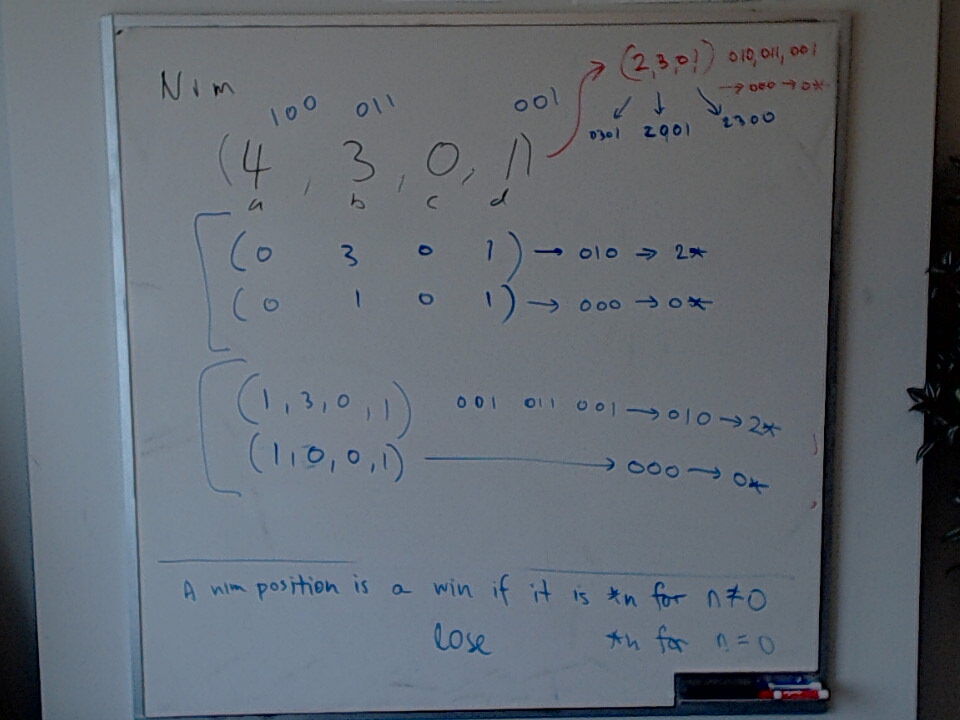 Nim
(2,3,0,1) 010,011,001
→ 000 → 0*
0301 2001 2300
100 011 001
(4, 3, 0, 1)
a b c d
(0 3 0 1) → 010 → 2*
(0 1 0 1) → 000 → 0*
(1,3,0,1) 001 011 001 → 010 → 2*
(1,0,0,1) → 000 → 0*
A nim position is a win if it is *n for n≠0
lose *n for n=0